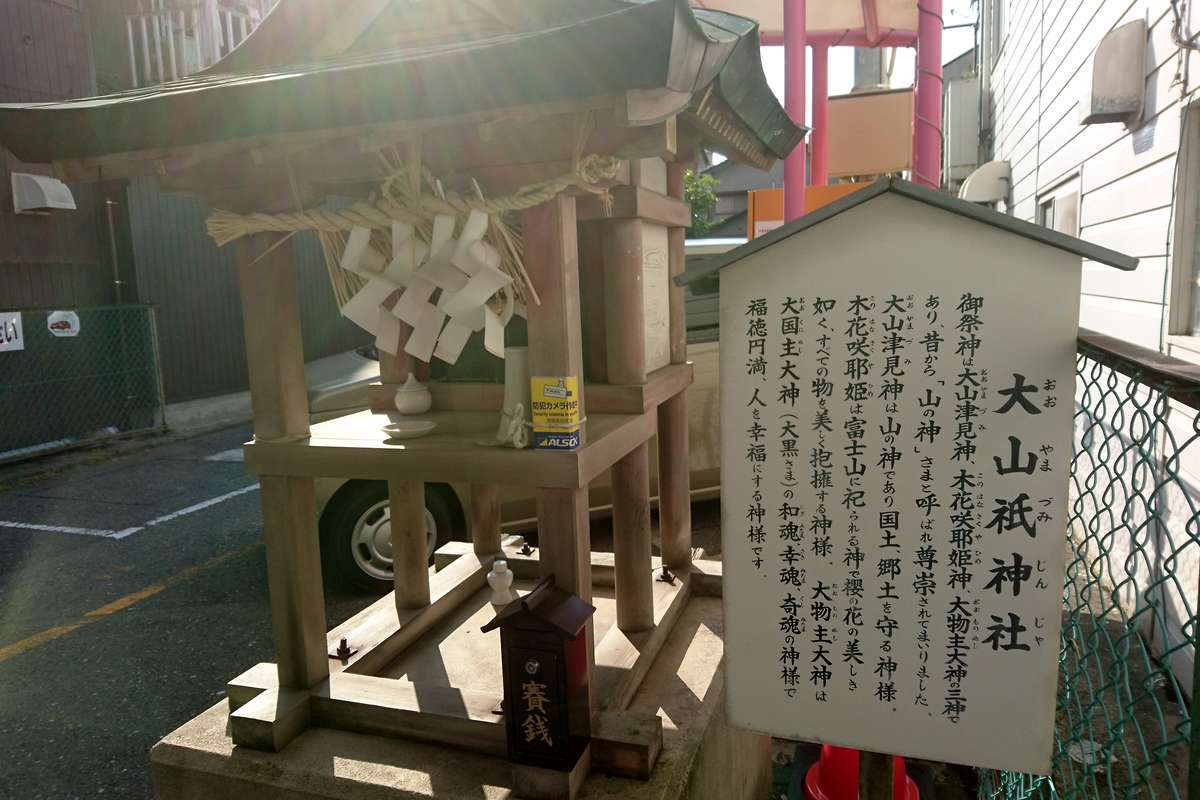 大山祇神社
おお やま づみ じん じゃ
御祭神は大山津見神、木花咲耶姫神、大物主大神の三神で
あり、昔から「山の神」さまと呼ばれ尊崇されてまいりました、
大山津見神は山の神であり国土、郷土を守る神様。
木花咲耶姫は富士山に祀られる神で櫻の花の美しき
如く、すべての物を美しく抱擁する神様。大物主大神は
大国主大神（大黒さま）の和魂幸魂、奇魂の神様で
福徳円満、人を幸福にする神様です.
賽銭
防犯カメラ作動中
ALSOK